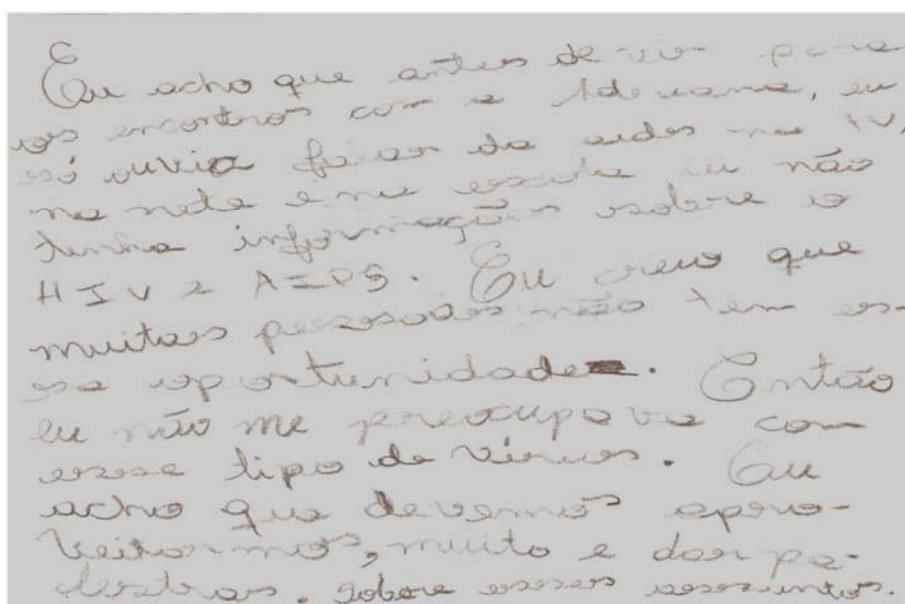 Eu acho que antes de vir para
os encontros com a Adevania, eu
só ouvia falar da aides na tv,
na nete e na escola eu não
tinha informações sobre o
HIV e AIDS. Eu creio que
muitas pessoas não tem es-
sa oportunidade. Então
eu não me preocupava com
esse tipo de vírus. Eu
acho que devemos apro-
veitarmos, muito e dar pa-
lestras. sobre esses assuntos.